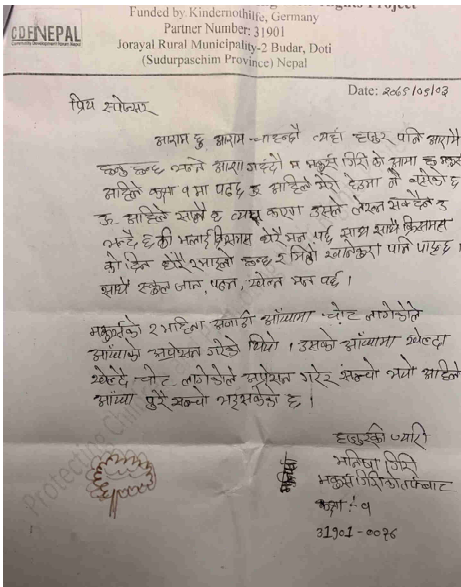 CDFNEPAL
Funded by Kindernothilfe, Germany
Partner Number: 31901
Jorayal Rural Municipality-2 Budar, Doti
(Sudurpaschim Province) Nepal
Date: 2065/05/03
प्रिय स्पोन्सर
आराम छु आराम चाहन्छौ त्यहाँ हजुर पनि आरामै
भन्ने आशा गर्दछौ म मकुस गिरी को आमा हु मकुस
अहिले कक्षा १ मा पढ्छ र अहिले मेरो देउमा नै बसेको छ
ऊ अहिले सानै छ त्यस कारण उसले लेख्न सक्दैन ऊ
भन्दै छ की मलाई क्रिसमस धेरै मन पर्छ साथ साथै क्रिसमस
को दिन धेरै रमाइलो हुन्छ र मिठो खानेकुरा पनि पाइन्छ ।
साथै स्कुल जान, पढ्न, खेल्न मन पर्छ ।
मकुसको २ महिना अगाडी आँखामा चोट लागेकोले
आँखाको अप्रेसन गरेको थियो । उसको आँखामा खेल्दा
खेल्दै चोट लागेकोले अप्रेसन गरेर सन्चो भयो अहिले
आँखा पुरै सन्चो भइसकेको छ ।
हजुरको प्यारी
मनिषा गिरी
मकुस गिरीको तर्फबाट
कक्षा :- १
31901-0076